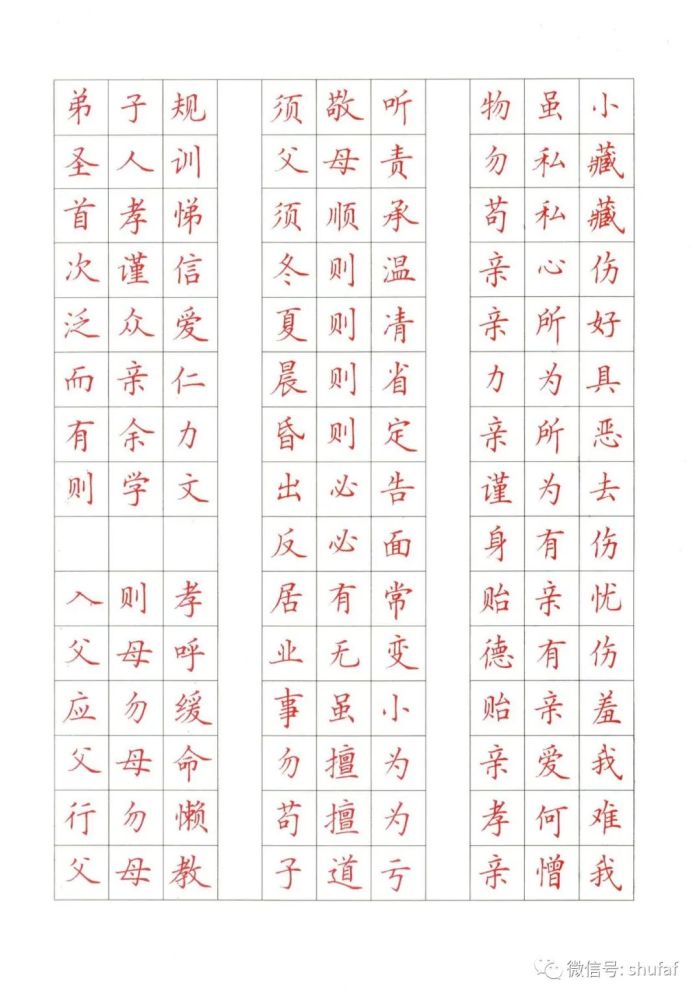 弟子规
圣人训
首孝悌
次谨信
泛众爱
而亲仁
有余力
则学文
入则孝
父母呼
应勿缓
父母命
行勿懒
父母教
须敬听
父母责
须顺承
冬则温
夏则凊
晨则省
昏则定
出必告
反必面
居有常
业无变
事虽小
勿擅为
苟擅为
子道亏
物虽小
勿私藏
苟私藏
亲心伤
亲所好
力为具
亲所恶
谨为去
身有伤
贻亲忧
德有伤
贻亲羞
亲爱我
孝何难
亲憎我
微信号: shufaf